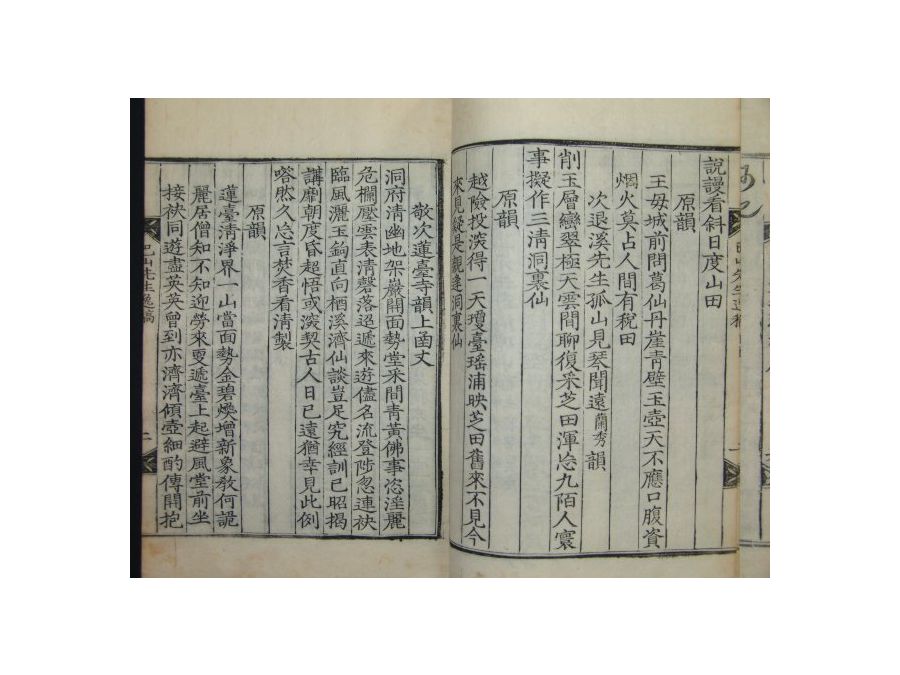 說謾看斜日度山田
原韻
王母城前問葛仙丹崖青壁玉壺天不應口腹資
烟火莫占人間有稅田
次退溪先生孤山見琴聞遠蘭秀韻
削玉層巒翠極天雲間聊復采芝田渾忘九陌人寰
事擬作三淸洞裏仙
原韻
越險投深得一天瓊臺瑤浦映芝田舊來不見今
來見疑是親逢洞裏仙
敬次蓮臺寺韻上函丈
洞府淸幽地架巖開面勢堂采間靑黃佛事恣淫麗
危欄壓雲表淸磬落迢遞來遊儘名流登陟忽連袂
臨風灑玉鉤直向栖溪濟仙談豈足究經訓已昭揭
講劘朝度昏超悟或深契古人日已遠猶幸見此例
嗒然久忘言焚香看淸製
原韻
蓮臺淸淨界一山當面勢金碧煥增新象敎何詭
麗居僧知不知迎勞來更遞臺上起避風堂前坐
接袂同遊盡英英曾到亦濟濟傾壺細酌傳開抱
巴山先生逸稿
二